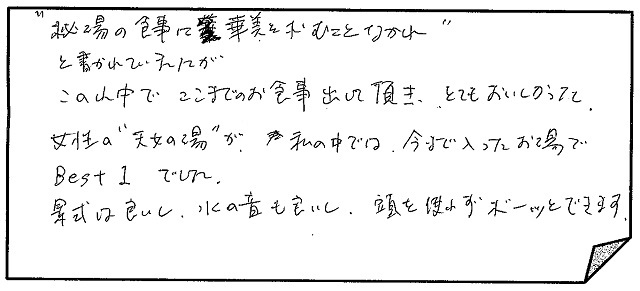 "秘湯の食事に華美をのぞむことなかれ"
と書かれていましたが
この山中で ここまでのお食事出して頂き、とてもおいしかったです。
女性の"天女の湯"が、私の中では、今まで入ったお湯で
Best 1 でした。
景色は良いし、水の音も良いし、頭を使わずボーッとできます。